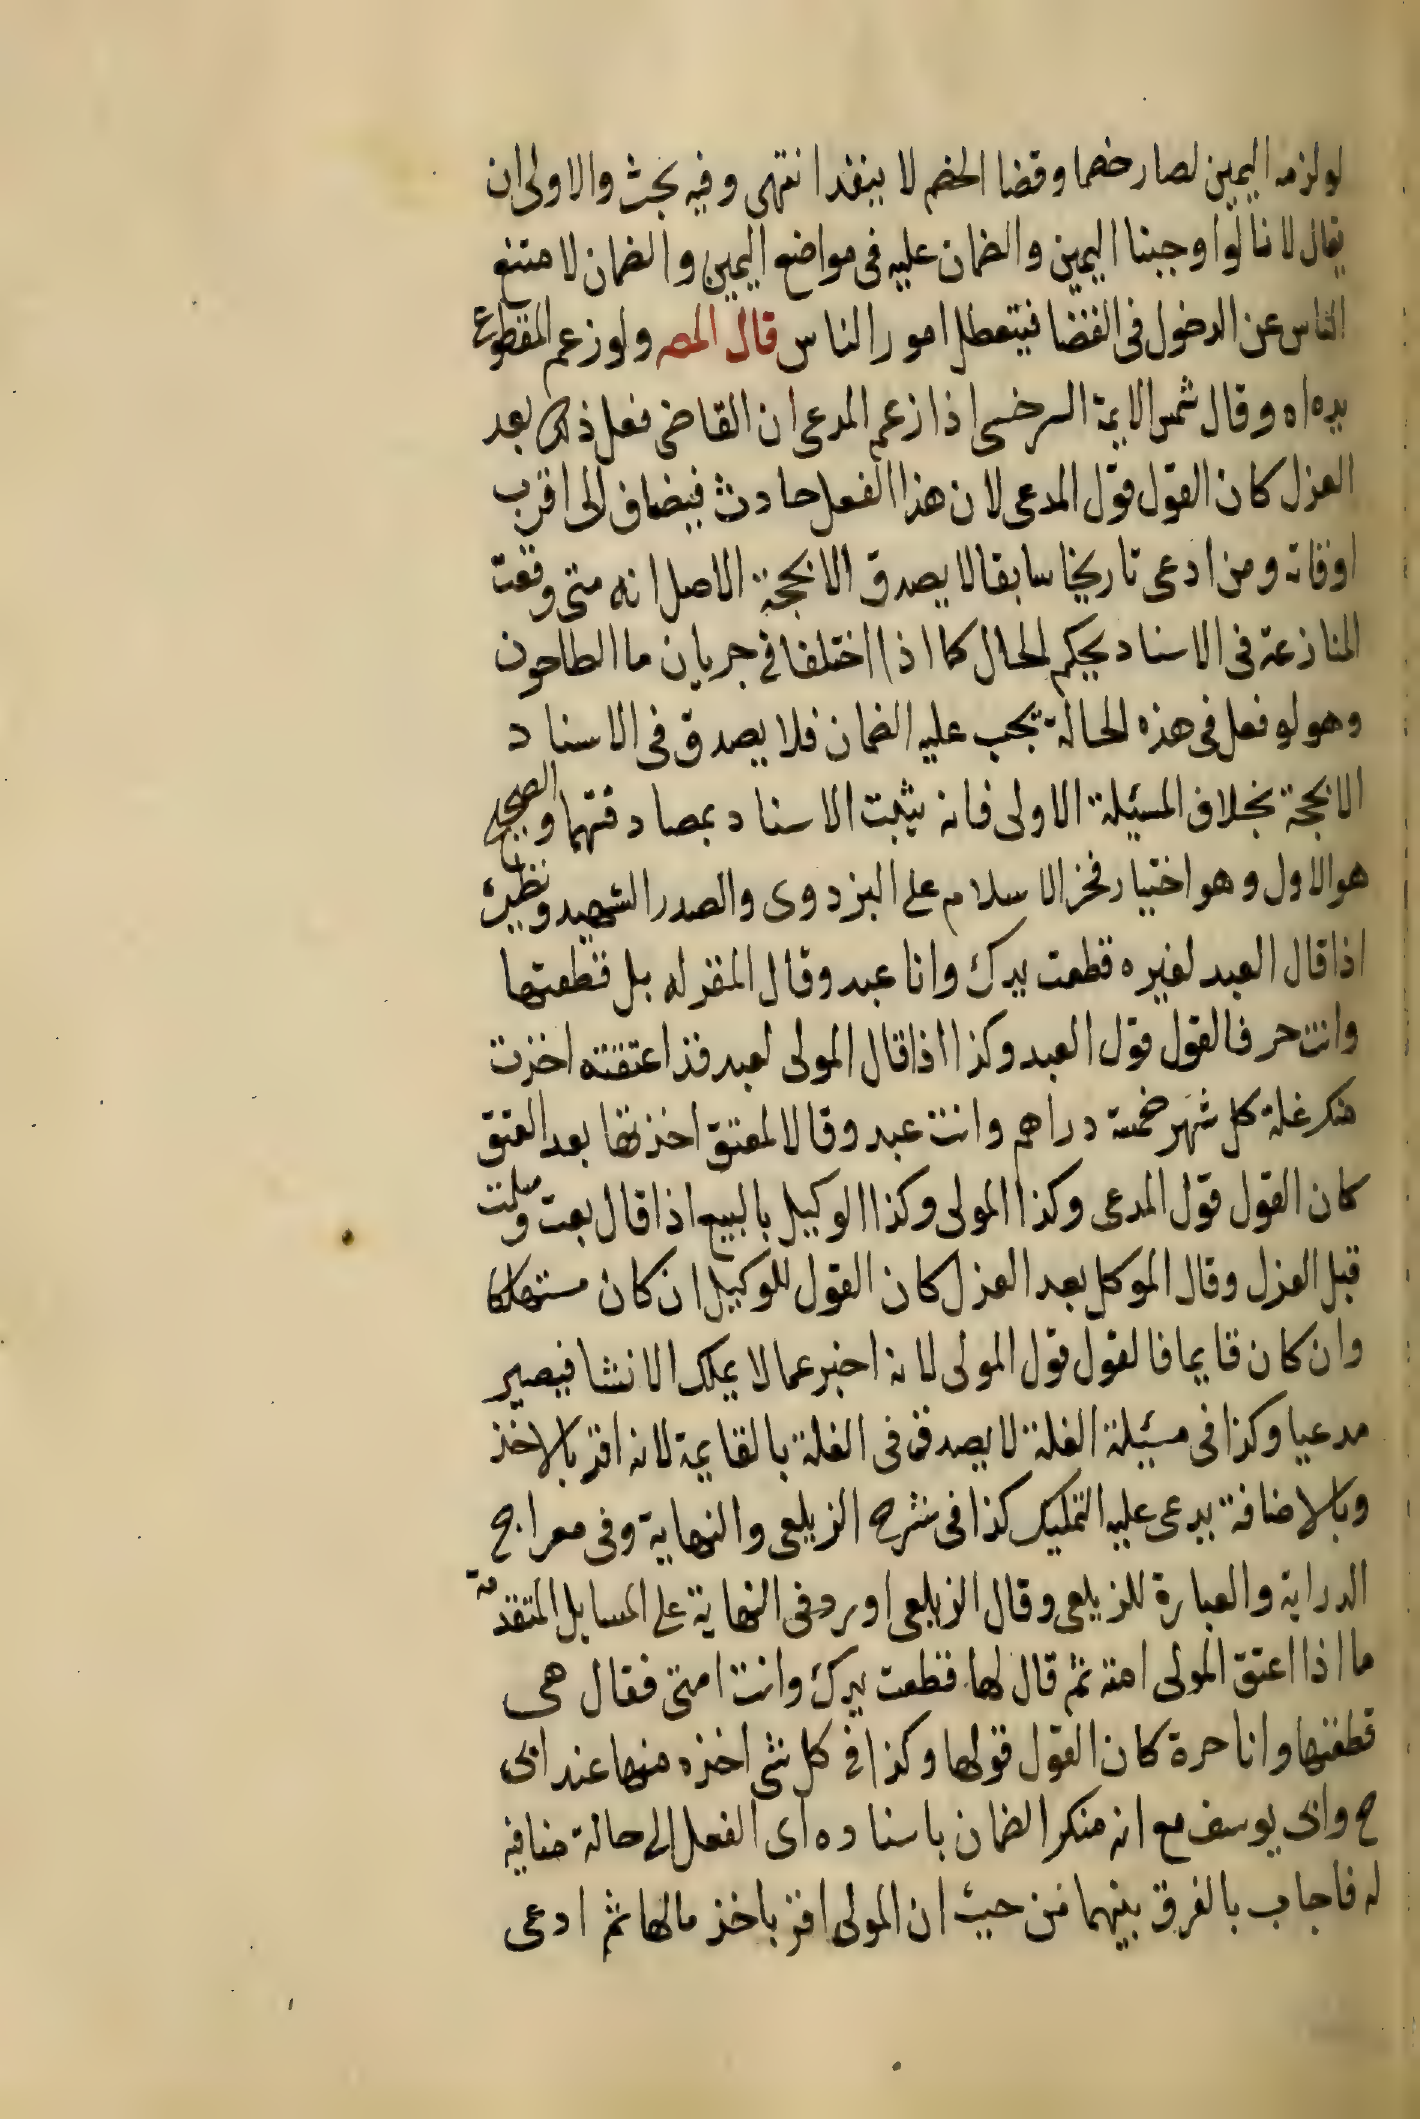 لو لزمه اليمين لصار خصما وقضا الخصم لا ينفذ انتهى وفيه بحث والاولى ان
يقال لانا لو اوجبنا اليمين والضمان عليه فى مواضع اليمين والضمان لامتنع
الناس عن الدخول فى القضا فيتعطل امور الناس قال المصـ ولو زعم المقطوع
يده اه وقال شمس الايمة السرخسى اذا زعم المدعى ان القاضى فعل ذلك بعد
العزل كان القول قول المدعى لان هذا الفعل حادث فيضاف الى اقرب
اوقاته ومن ادعى تاريخا سابقا لا يصدق الا بحجة الاصل انه متى وقعت
المنازعة فى الاسناد يحكم الحال كما اذا اختلفا فى جريان ما الطاحون
وهو لو فعل فى هذه الحالة يجب عليه الضمان فلا يصدق فى الاسناد
الا بحجة بخلاف المسئيلة الاولى فانه يثبت الاسناد بمصادقتهما والصحيح
هو الاول وهو اختيار فخر الاسلام على البزدوى والصدر الشهيد ونظيره
اذا قال العبد لغيره قطعت يدك وانا عبد وقال المقر له بل قطعتها
وانت حر فالقول قول العبد وكذا اذا قال المولى لعبد قد اعتقته اخذت
منك غلة كل شهر خمسة دراهم وانت عبد وقال المعتق اخذتها بعد العتق
كان القول قول المدعى وكذا المولى وكذا الوكيل بالبيع اذا قال بعت وسلمت
قبل العزل وقال الموكل بعد العزل كان القول للوكيل ان كان مستهلكا
وان كان قايما فالقول قول المولى لانه اخبر عما لا يملك الانشا فيصير
مدعيا وكذا فى مسئيلة الغلة لا يصدق فى الغلة بالقايمة لانه اقر بالاخذ
وبالاضافة يدعى عليه التمليك كذا فى شرح الزيلعى والنهاية وفى معراج
الدراية والعبارة للزيلعى وقال الزيلعى اورد فى النهاية على المسايل المتقدمة
ما اذا اعتق المولى امته ثم قال لها قطعت يدك وانت امتى فقال هى
قطعتها وانا حرة كان القول قولها وكذا فى كل شى اخذه منها عند ابى
ح وابى يوسف مع انه منكر الضمان باسناده اى الفعل الى حالة منافية
له فاجاب بالفرق بينهما من حيث ان المولى اقر باخذ مالها ثم ادعى